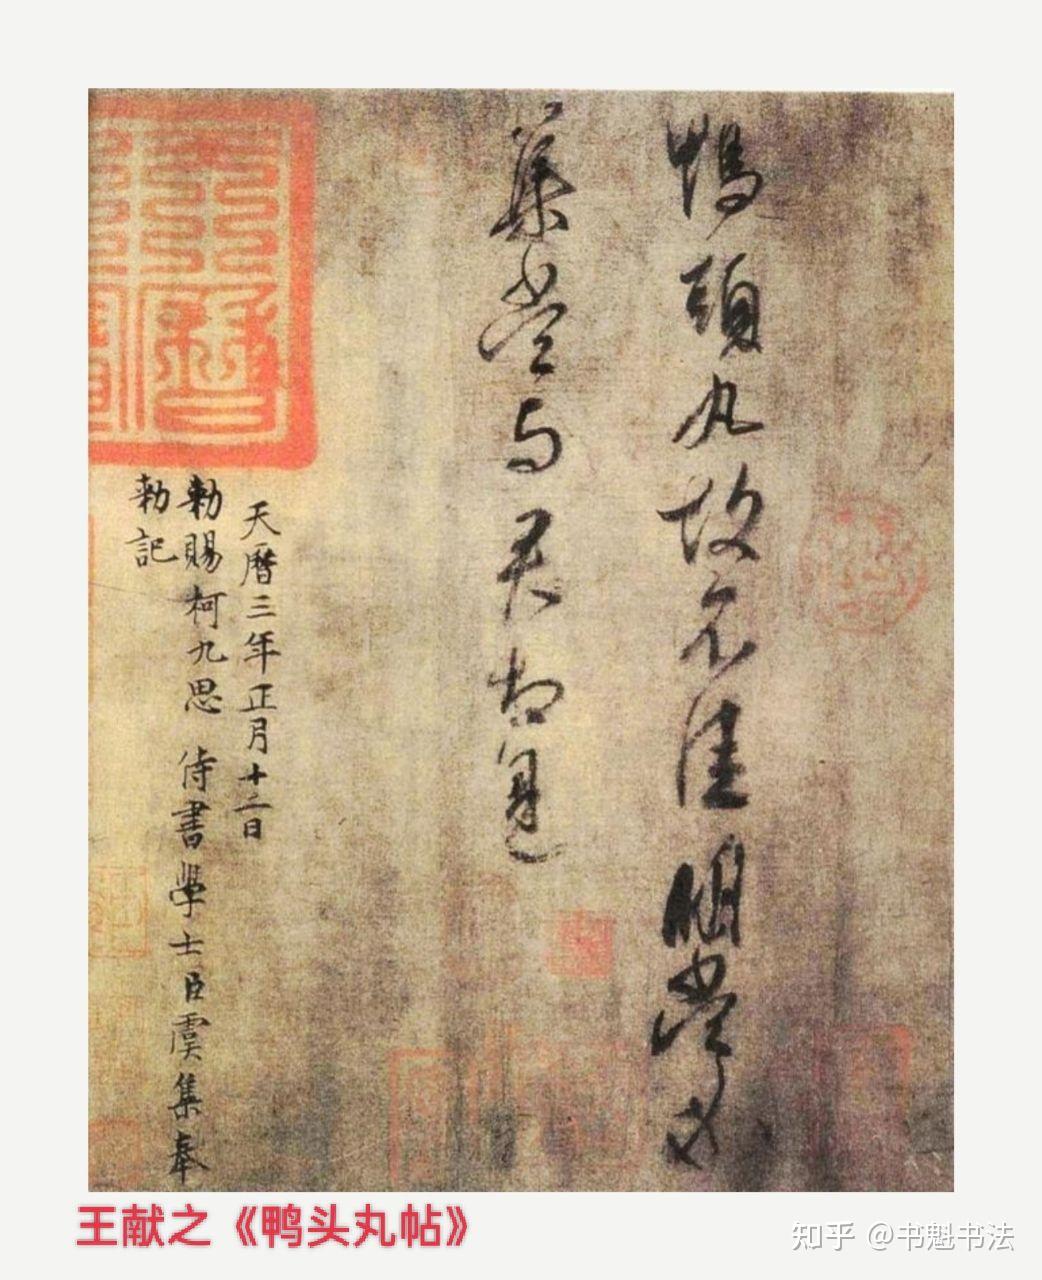 鴨頭丸故不佳明當必
集當與君相見
天曆三年正月十二日
勑賜柯九思 侍書學士臣虞集奉
勑記
王献之《鸭头丸帖》
知乎 @书魁书法